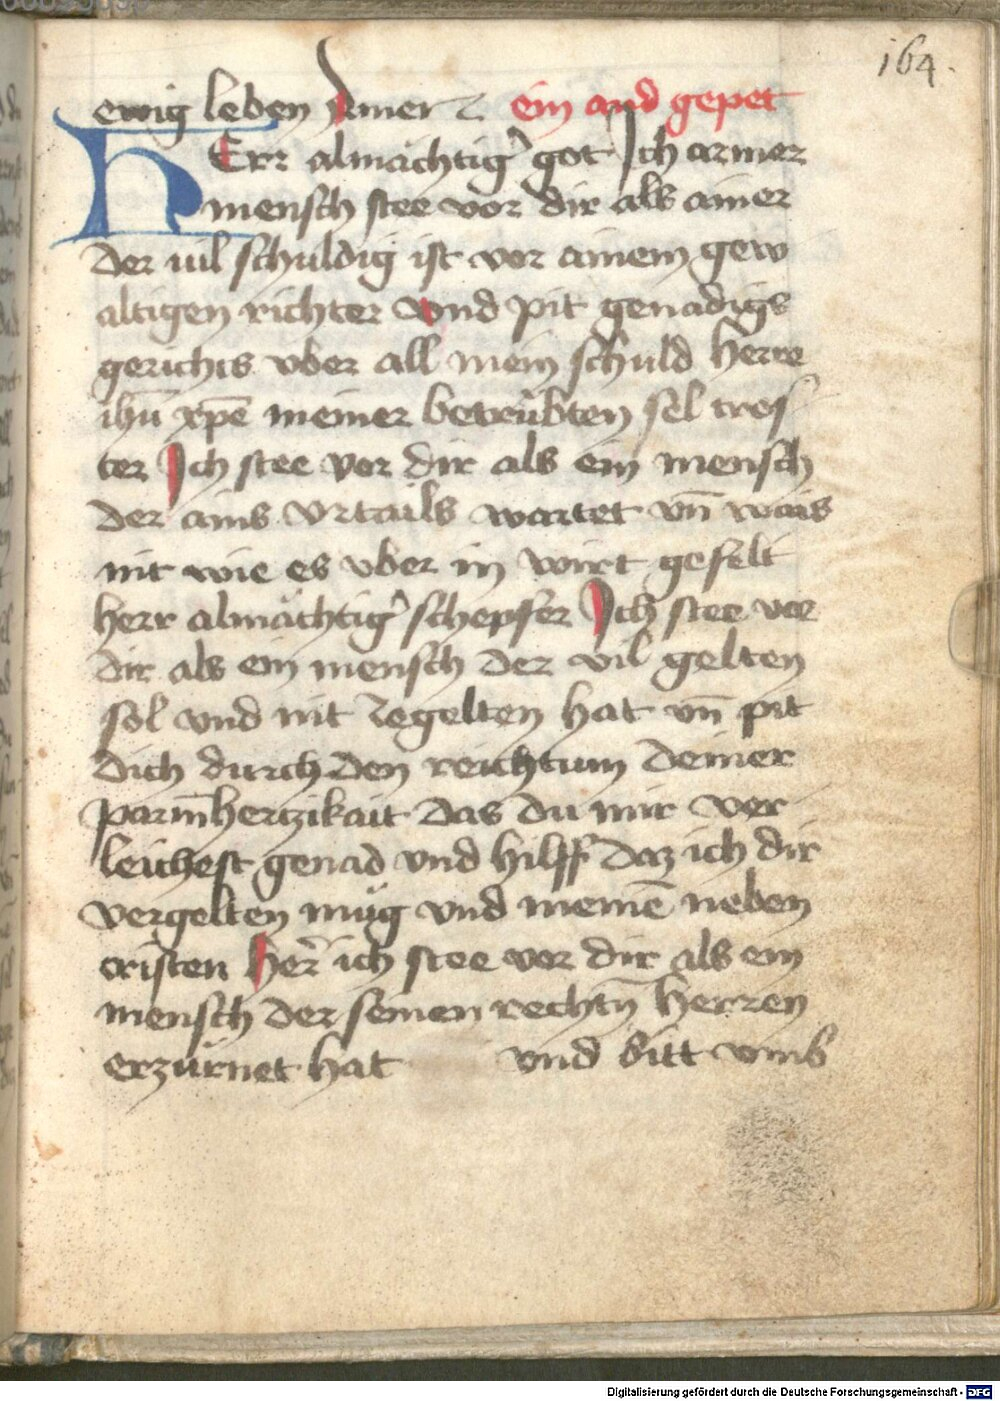 164.
ewig leben Amer ein and gepet
HErr almächtig̉ got Ich armer
mensch stee vor dir als ainer
der uil schuldig ist vor ainem gew
altigen richter vnd pit genadigs
gerichts vber all mein schuld herre
ihū xp̄e meiner betrübten sel tros
ter Ich stee vor dir als ein mensch
der ains vrtails wartet vn̄ wais
nit wie es vber in wirt gefelt
herr almächtig̉ schepfer Ich stee vor
dir als ein mensch der vil gelten
sol vnd nit vegelten hat vn̄ pit
dich durch den reichtum deiner
parm̄hertzikait das du mir ver
leichest genad vnd hilff daz ich dir
vergelten müg vnd meinē neben
cristen her̉ ich stee vor dir als ein
mensch der seinen rechtn̄ herren
erzürnet hat vnd bitt vmb
Digitalisierung gefördert durch die Deutsche Forschungsgemeinschaft - DFG